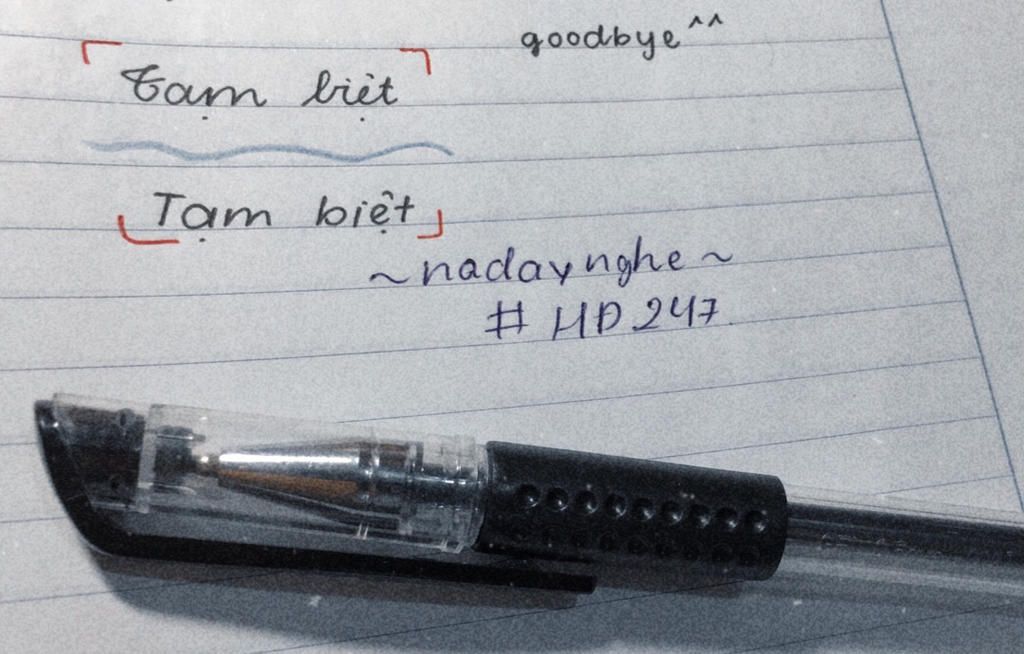 goodbye ^^
Tạm biệt
Tạm biệt
~ nadaynghe ~
# HD 247